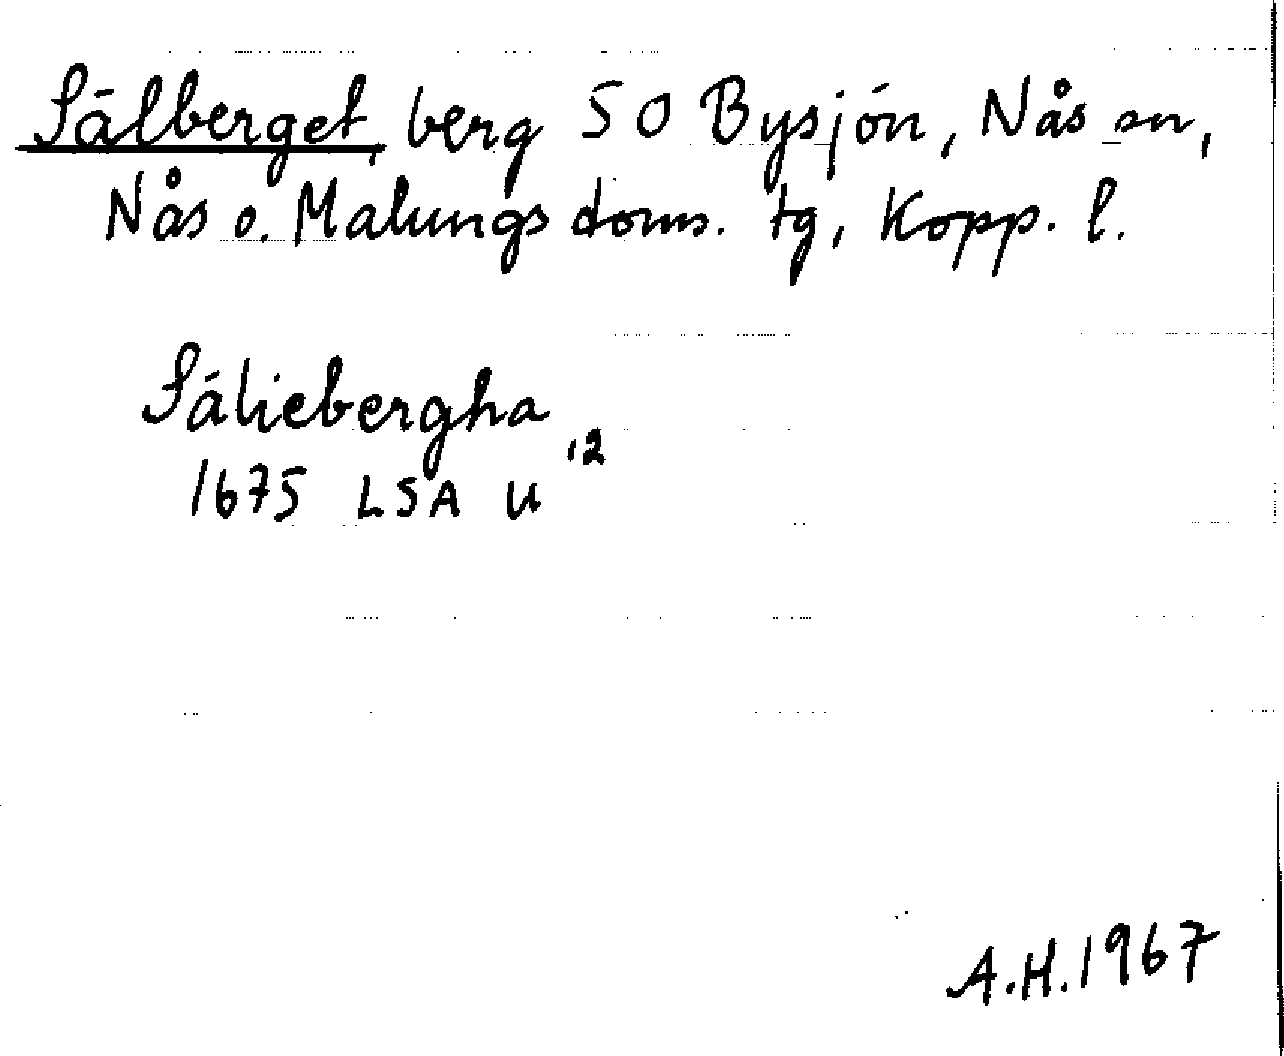 Sälberget, berg SO Bysjön, Nås sn,
Nås o. Malungs doms. tg, Kopp. l.
Säliebergha
1675 LSA U 12
A.H. 1967